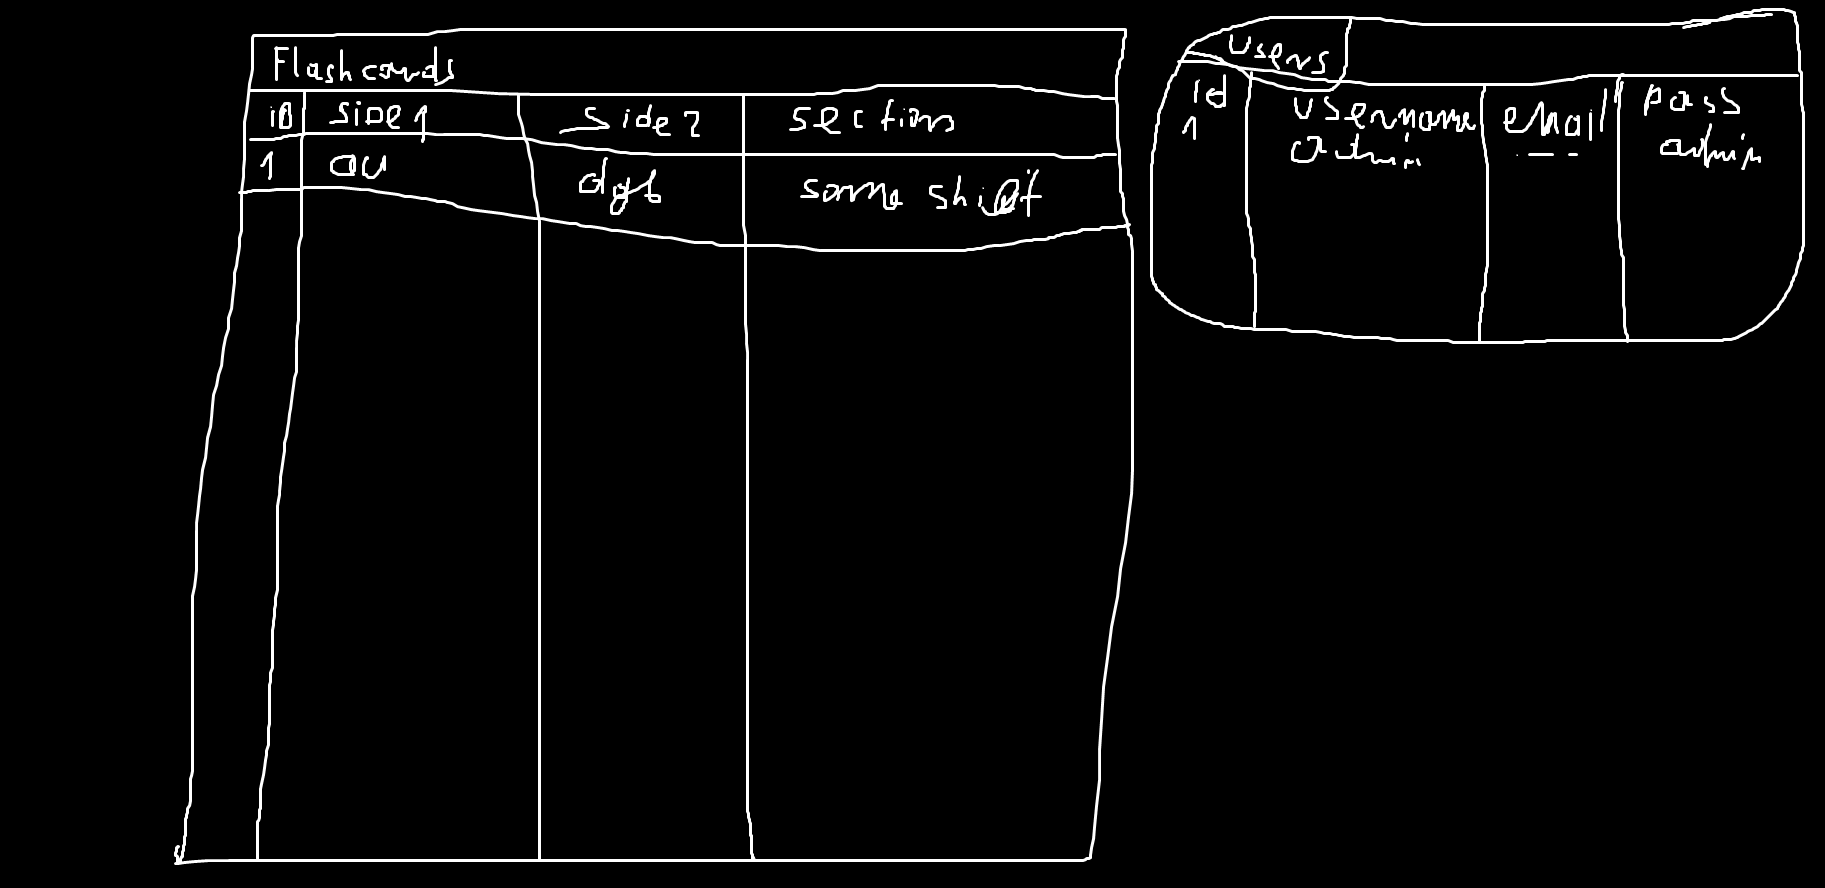 Flashcards
id side1 side2 section
1 au dgt some
users
id username email pass
1 admin --- admin